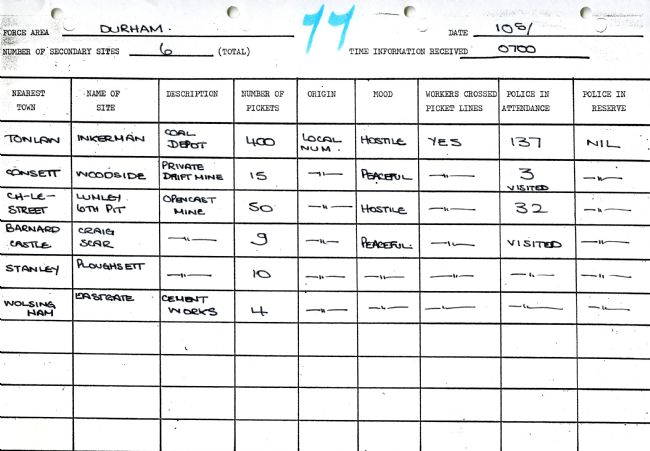 FORCE AREA DURHAM. 77 DATE 1051
NUMBER OF SECONDARY SITES 6 (TOTAL) TIME INFORMATION RECEIVED 0700
NEAREST TOWN NAME OF SITE DESCRIPTION NUMBER OF PICKETS ORIGIN MOOD WORKERS CROSSED PICKET LINES POLICE IN ATTENDANCE POLICE IN RESERVE
TOWLAN INKERMAN COAL DEPOT 400 LOCAL NUM. HOSTILE YES 137 NIL
CONSETT WOODSIDE PRIVATE DRIFT MINE 15 —"— PEACEFUL —"— 3 VISITED —"—
CH-LE-STREET LUMLEY 6TH PIT OPENCAST MINE 50 —"— HOSTILE —"— 32 —"—
BARNARD CASTLE CRAIG SCAR —"— 9 —"— PEACEFUL. —"— VISITED —"—
STANLEY PLOUGHSETT —"— 10 —"— —"— —"— —"— —"—
WOLSINGHAM EASTGATE CEMENT WORKS 4 —"— —"— —"— —"— —"—